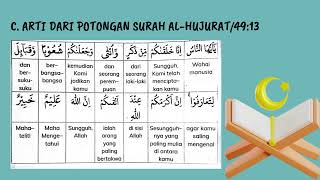 C. ARTI DARI POTONGAN SURAH AL-HUJURAT/49:13
يَٰٓأَيُّهَا النَّاسُ إِنَّا خَلَقْنَٰكُمْ مِنْ ذَكَرٍ وَأُنْثَىٰ وَجَعَلْنَٰكُمْ شُعُوْبًا وَّقَبَآئِلَ
Wahai manusia
Sungguh, Kami telah menciptakan kamu
dari seorang laki-laki
dan seorang perempuan
kemudian Kami jadikan kamu
berbangsa-bangsa
dan bersuku-suku
لِتَعَارَفُوْا إِنَّ أَكْرَمَكُمْ عِنْدَ اللّٰهِ أَتْقَٰكُمْ إِنَّ اللّٰهَ عَلِيْمٌ خَبِيْرٌ
agar kamu saling mengenal
Sesungguhnya yang paling mulia di antara kamu
di sisi Allah
ialah orang yang paling bertakwa
Sungguh, Allah
Maha Mengetahui
Mahateliti